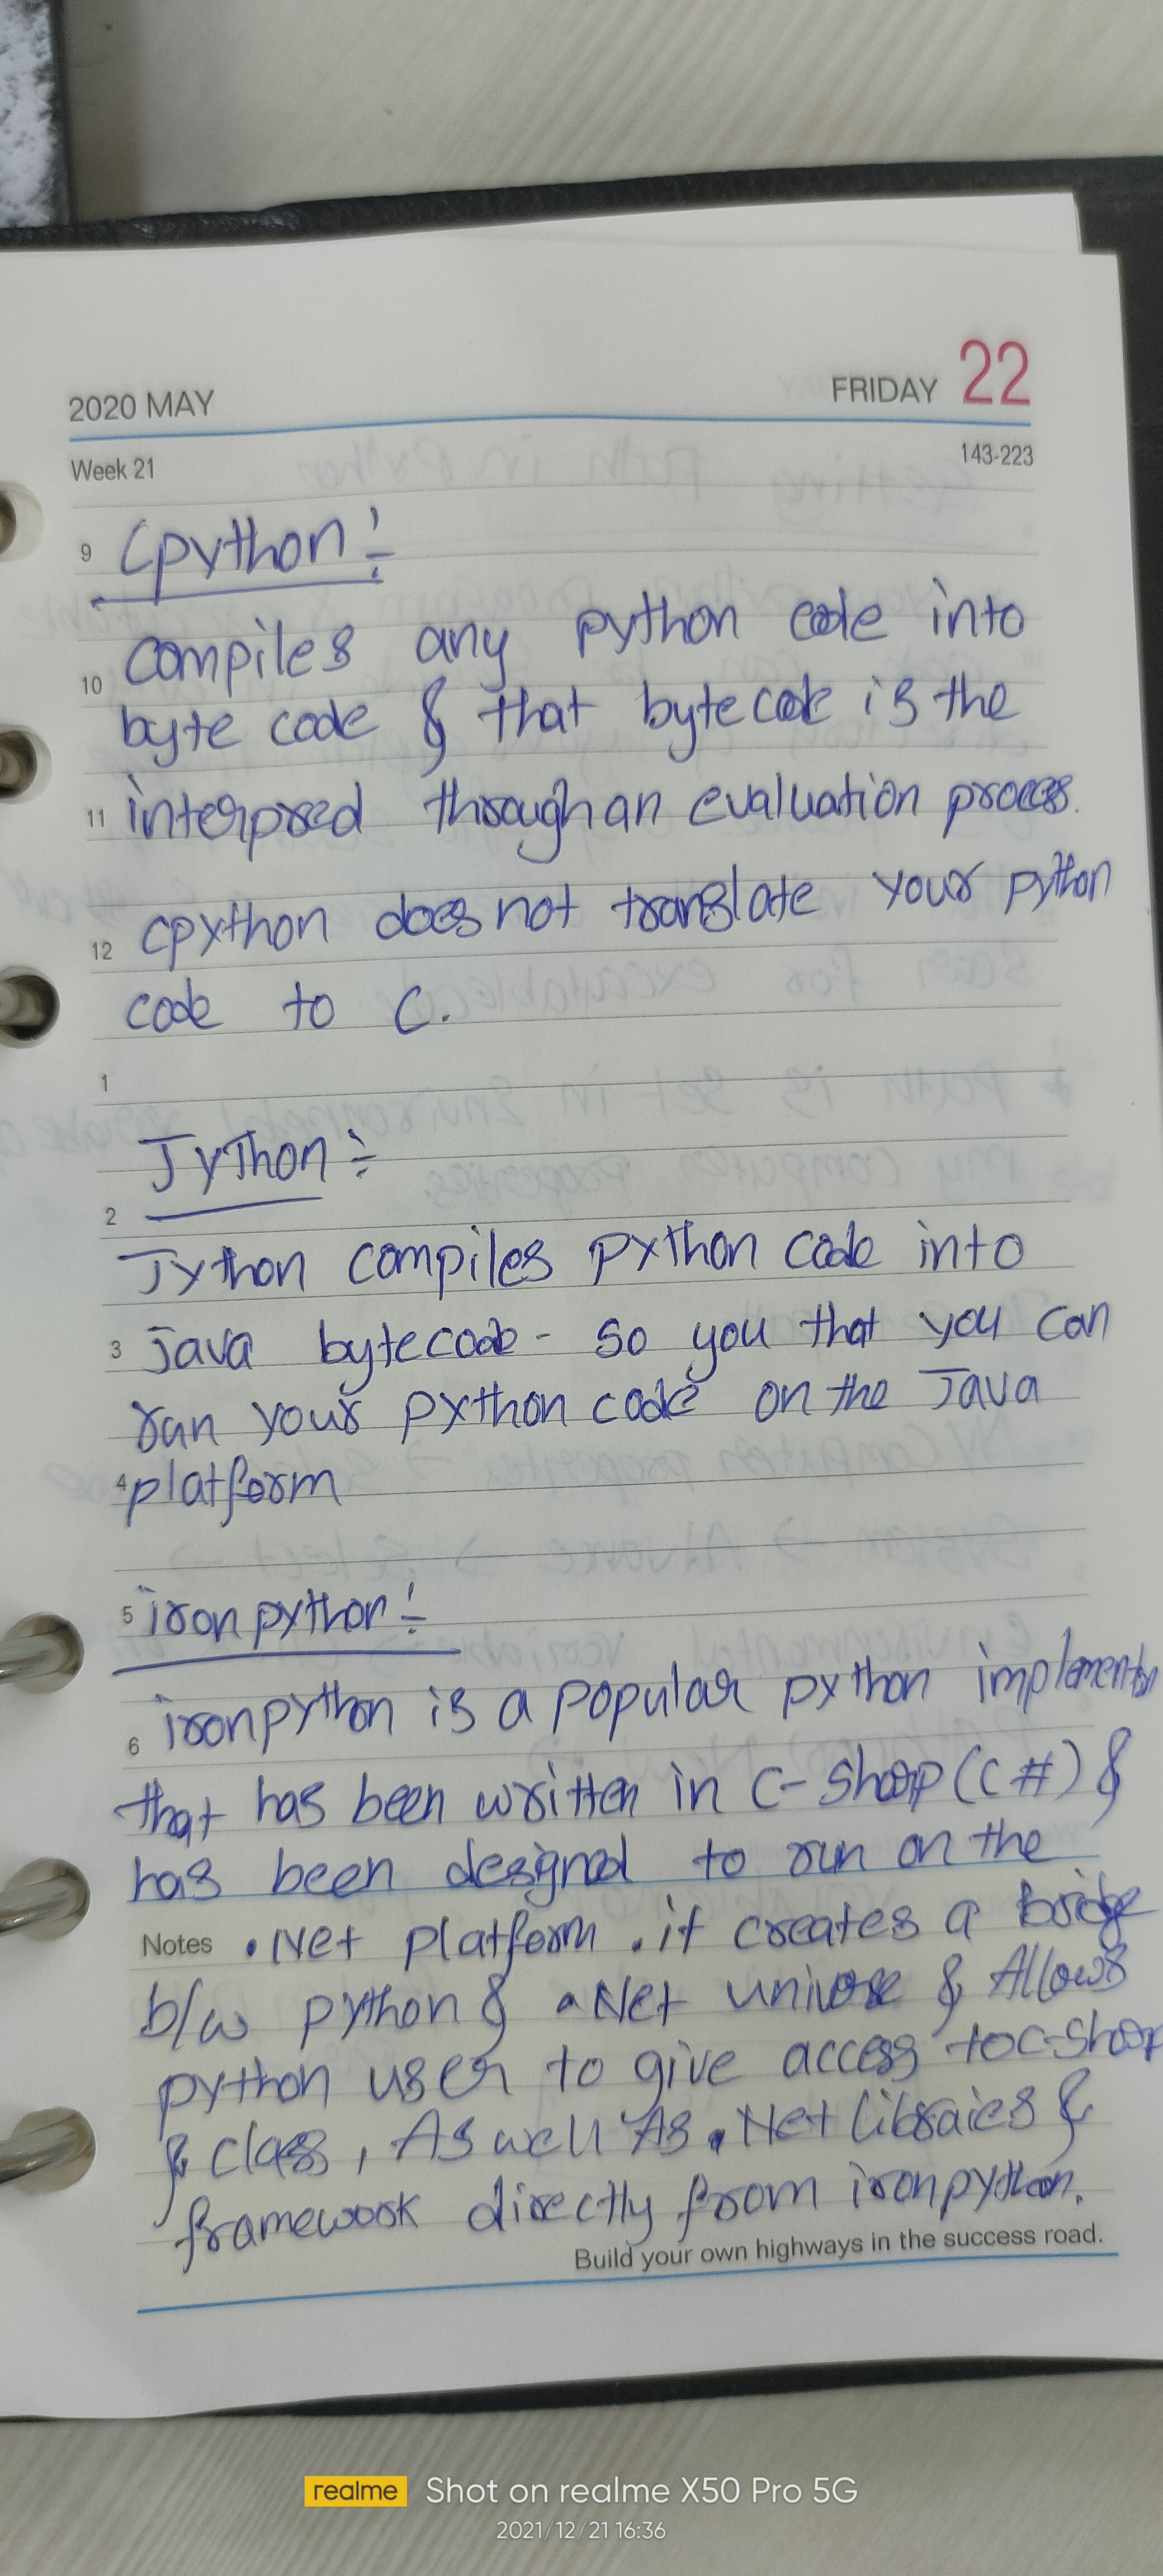 2020 MAY
FRIDAY 22
Week 21
143-223
9 Cpython:-
compiles any python code into
10
byte code & that bytecode is the
11 interpred through an evaluation process.
12 cpython does not translate your python
code to C.
1
Jython:-
2
Jython compiles python code into
3 java bytecode - so you that you can
run your python code on the Java
4 platform
5 ironpython:-
6 ironpython is a popular python
that has been written in C-Sharp (C#) &
has been designed to run on the
Notes .Net platform. it creates a bridge
b/w python & .Net universe & Allows
python user to give access to C-Sharp
& class, As well As .Net libraies &
framework directly from ironpython.
Build your own highways in the success road.
realme Shot on realme X50 Pro 5G
2021/12/21 16:36